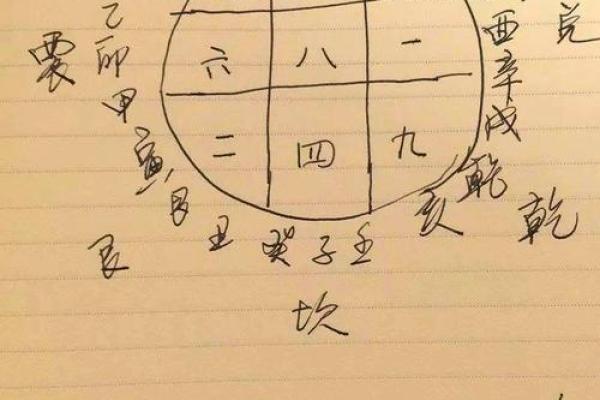 乙 酉 兑
震 卯 六 八 一 辛
甲 戌
寅 二 四 九 乾
艮 乾
艮 丑 癸 子 壬 亥
坎